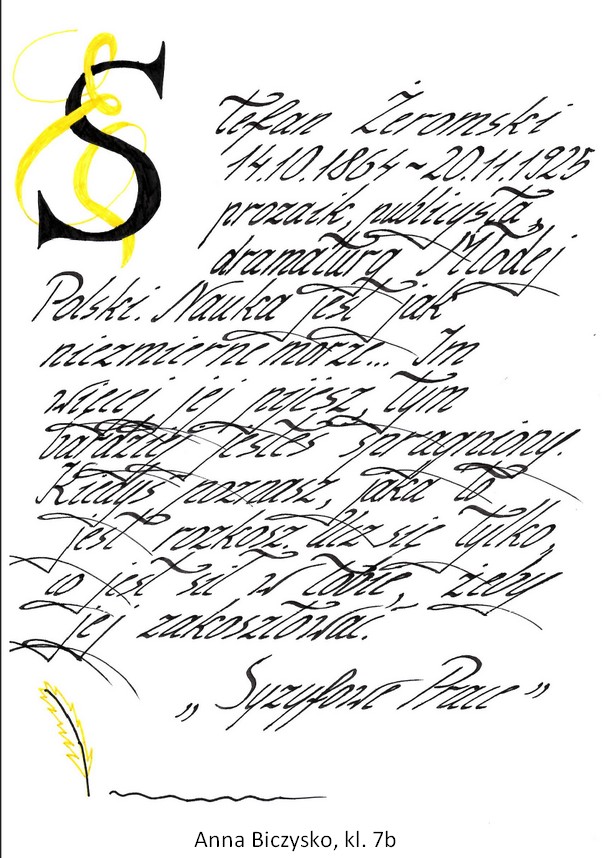 Stefan Żeromski
14.10.1864 ~ 20.11.1925
prozaik, publicysta,
dramaturg Młodej
Polski. Nauka jest jak
niezmierne morze... Im
więcej jej pijesz, tym
bardziej jesteś spragniony.
Kiedyś poznasz, jaka to
jest rozkosz. Ucz się tylko,
co jest sił w tobie, żeby
jej zakosztować.
„Syzyfowe Prace”
Anna Biczysko, kl. 7b